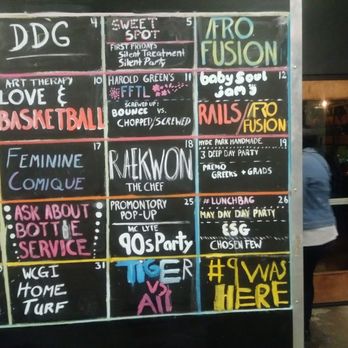 4
DDG
5
SWEET
SPOT
FIRST FRIDAYS
Silent Treatment
Silent Party
/FRO
FUSION
ART THERAPY
LOVE &
BASKETBALL
11
HAROLD GREEN'S
FFTL
SCREWED UP:
BOUNCE VS
CHOPPED/SCREWED
12
baby Soul
jam
RAILS
/FRO
FUSION
17
FEMININE
COMIQUE
18
RAEKWON
THE CHEF
19
HYDE PARK HANDMADE
3 DEEP DAY PARTY
PREMO
GREEKS + GRADS
ASK ABOUT
BOTTLE
SERVICE
25
PROMONTORY
POP-UP
MC LYTE
90s Party
26
#LUNCHBAG
MAY DAY DAY PARTY
ESG
CHOSEN FEW
31
WCGI
HOME
TURF
TIGER
VS
All
#9 WAS
HERE